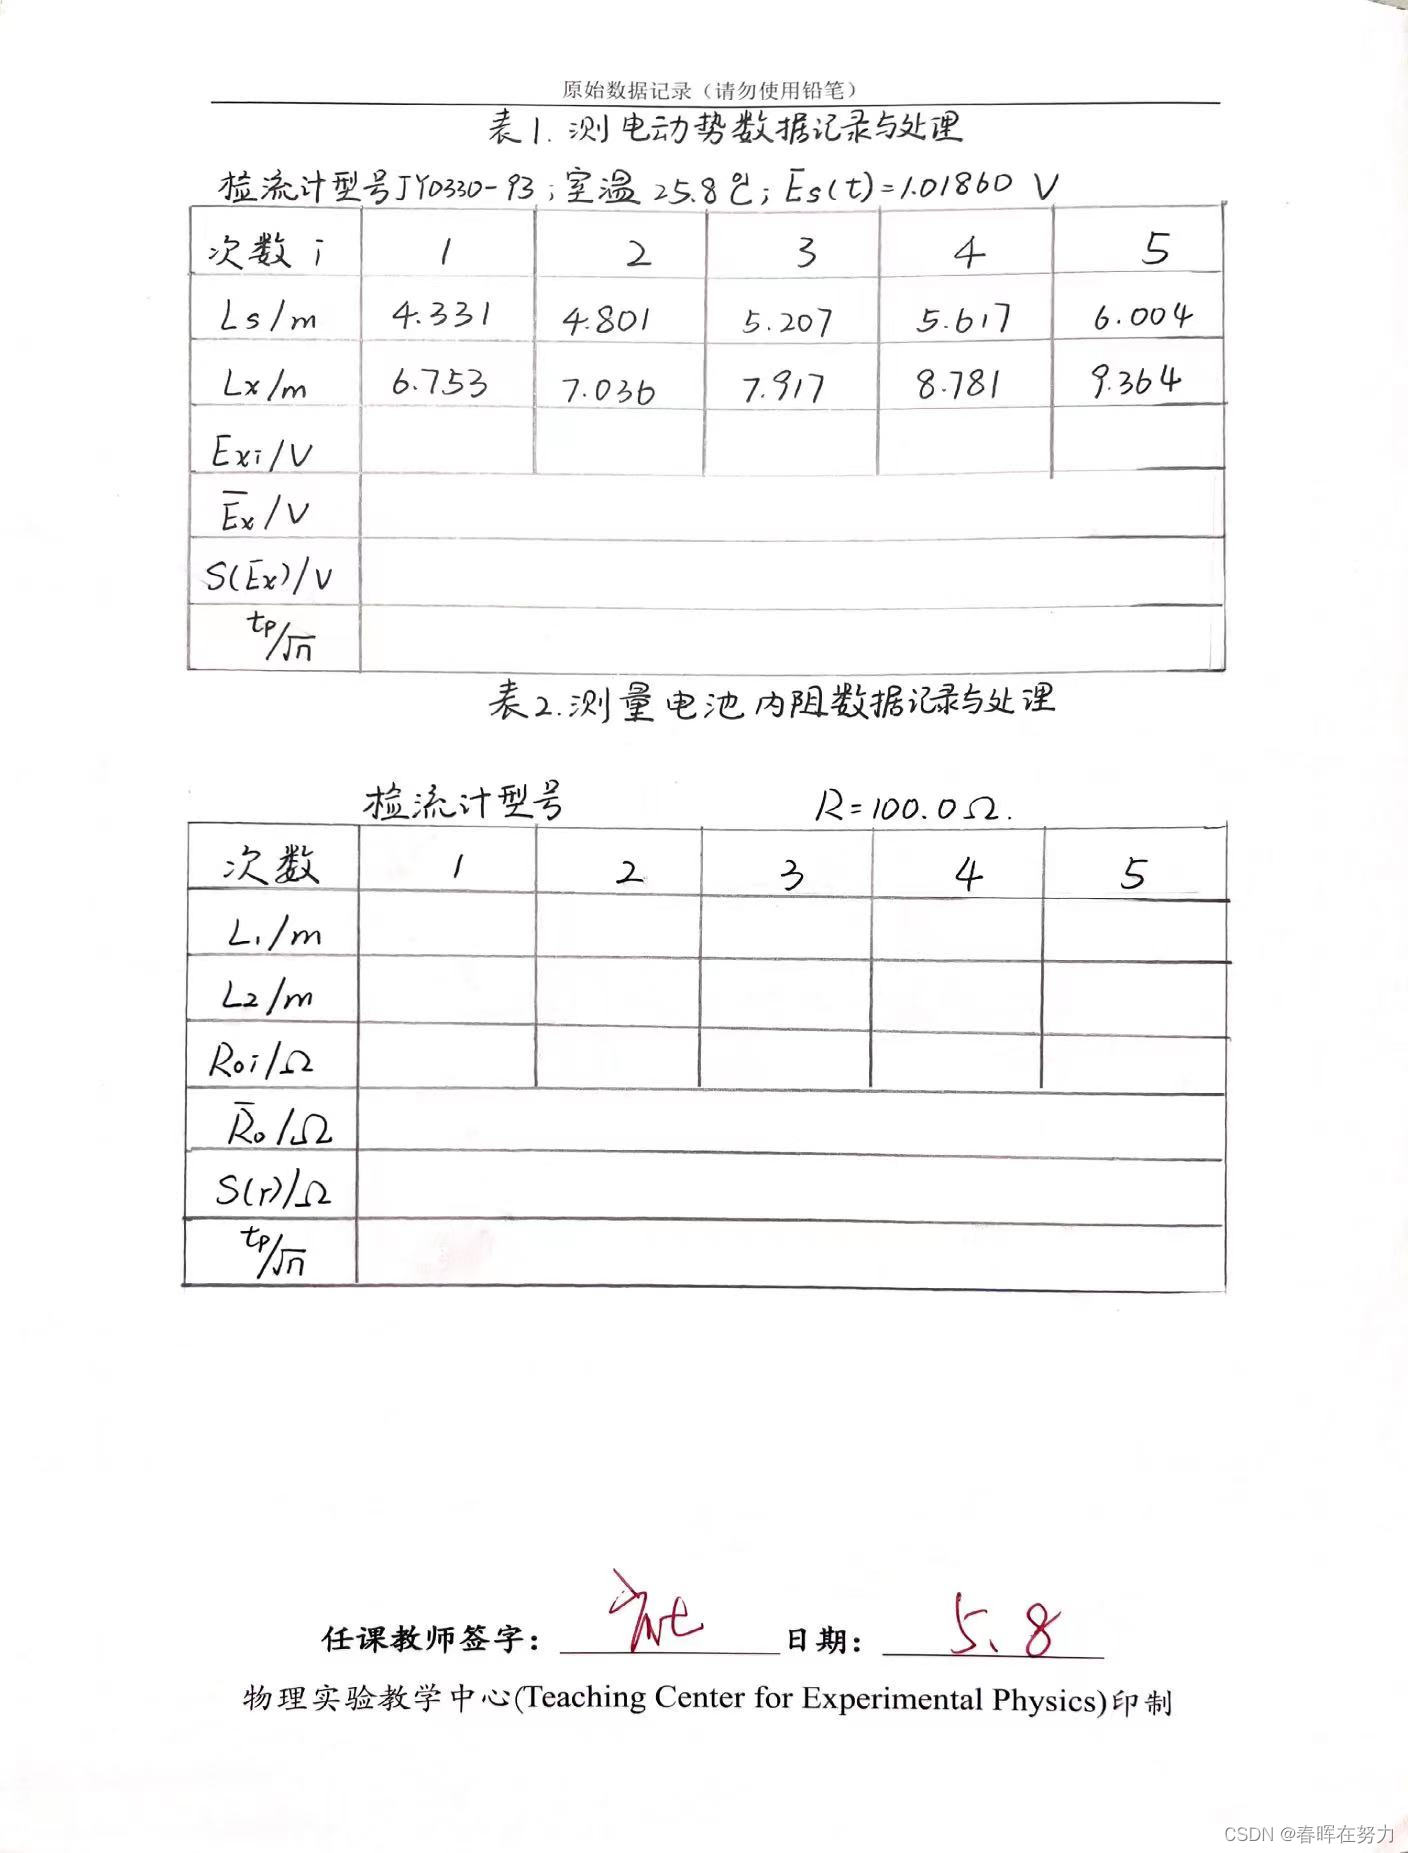 原始数据记录（请勿使用铅笔）
表1.测电动势数据记录与处理
检流计型号JY0330-93；室温25.8℃；Ēs(t)=1.01860 V
次数 i 1 2 3 4 5
Ls/m 4.331 4.801 5.207 5.617 6.004
Lx/m 6.753 7.036 7.917 8.781 9.364
Exi/V
Ēx/V
S(Ēx)/V
tp/√n
表2.测量电池内阻数据记录与处理
检流计型号 R=100.0Ω.
次数 1 2 3 4 5
L1/m
L2/m
Roi/Ω
R̄o/Ω
S(r)/Ω
tp/√n
任课教师签字： 日期： 5.8
物理实验教学中心(Teaching Center for Experimental Physics)印制
CSDN @春晖在努力